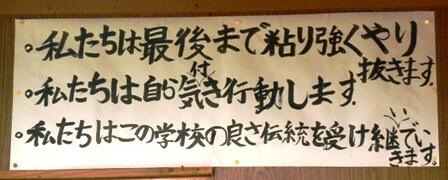 。私たちは最後まで粘り強くやり抜きます。
。私たちは自ら気付き行動します。
。私たちはこの学校の良さ伝統を受け継でいきます。